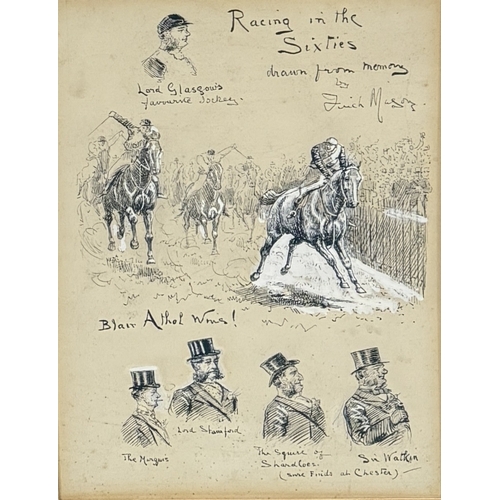 Racing in the
Sixties
drawn from memory
by
Finch Mason.
Lord Glasgow's
favourite Jockey.
Blair Athol Wins!
The Marquis
Lord Stamford
The Squire of
Shardloes.
(sure Finds at Chester)
Sir Watkin